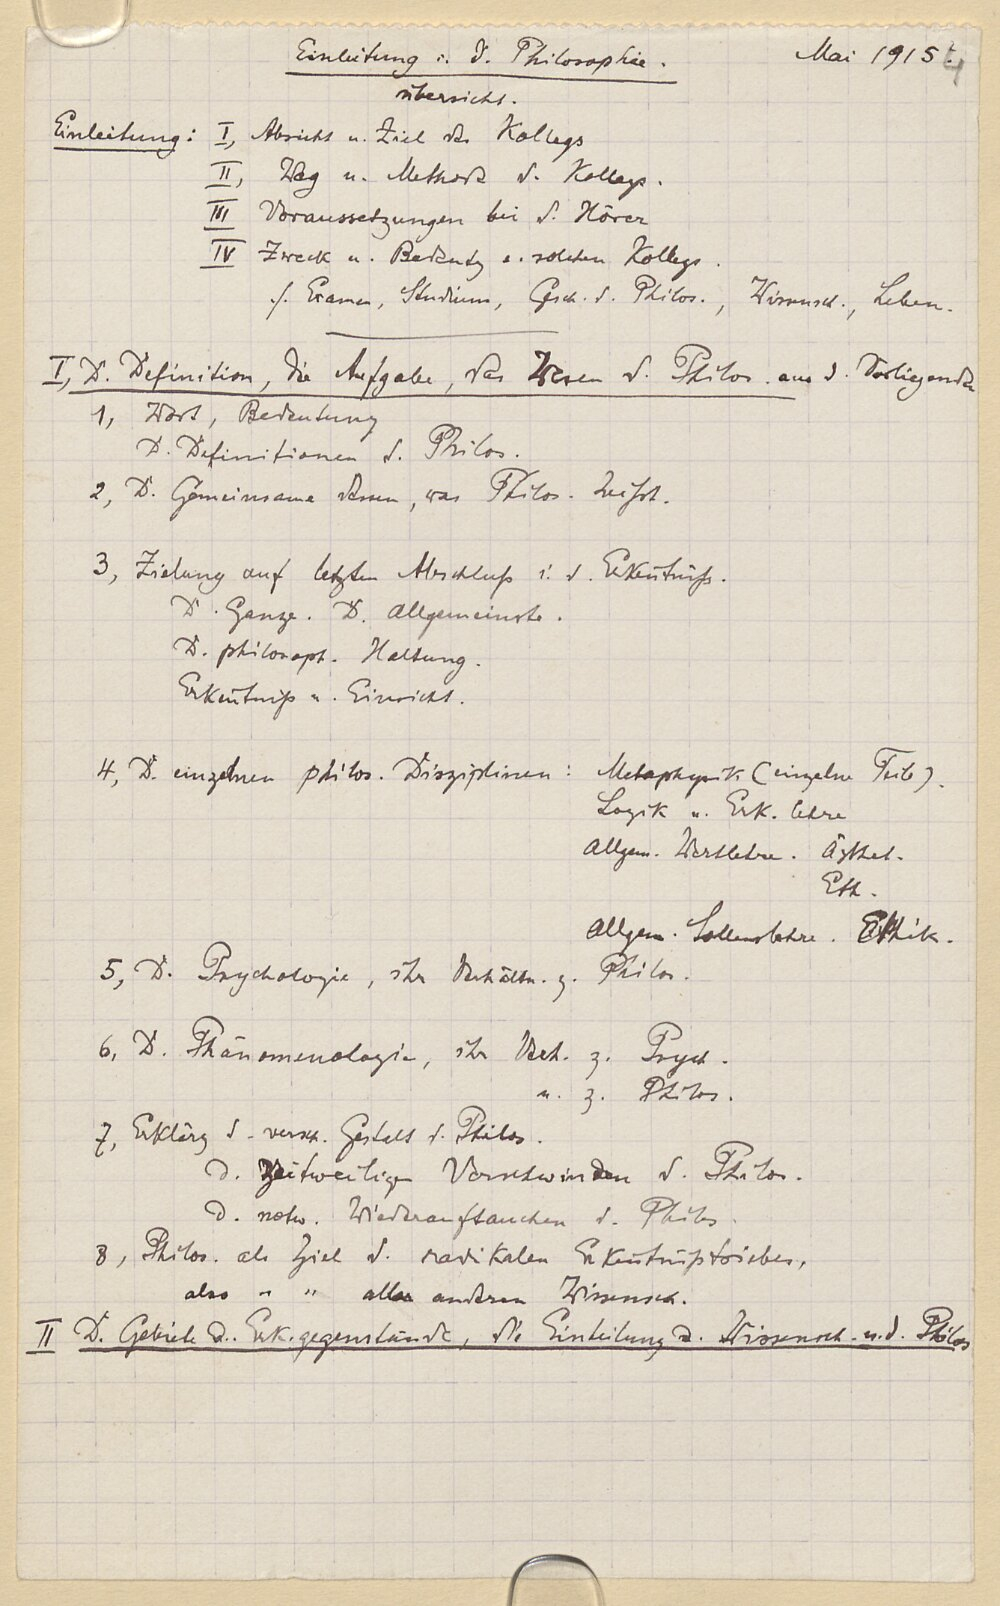 Einleitung i. d. Philosophie. Mai 1915.
4
Übersicht.
Einleitung: I, Absicht u. Ziel des Kollegs
II, Weg u. Methode d. Kollegs.
III Voraussetzungen bei d. Hörer
IV Zweck u. Bedeutg e. solchen Kollegs.
f. Examen, Studium, Gesch. d. Philos., Wissensch., Leben.
I, D. Definition, die Aufgabe, das Wesen d. Philos. aus d. Vorliegenden
1, Wort, Bedeutung
D. Definitionen d. Philos.
2, D. Gemeinsame dessen, was Philos. heißt.
3, Zielung auf letzten Abschluß i. d. Erkeñtniß.
D. Ganze. D. Allgemeinste.
D. philosoph. Haltung.
Erkeñtniß u. Einsicht.
4, D. einzelnen philos. Disziplinen: Metaphysik (einzelne Teile).
Logik u. Erk. lehre
Allgem. Wertlehre. Ästhet.
Eth.
Allgem. Sollenslehre. Ethik.
5, D. Psychologie, ihr Verhältn. z. Philos.
6, D. Phänomenologie, ihr Verh. z. Psych.
u. z. Philos.
7, Erklärg d. versch. Gestalt d. Philos.
D. zeitweilige Verschwinden d. Philos.
D. notw. Wiederauftauchen d. Philos.
8, Philos. als Ziel d. radikalen Erkeñtnißtriebes,
also " " aller anderen Wissensch.
II D. Gebiete d. Erk.gegenstände, die Einteilung d. Wissensch. u. d. Philos